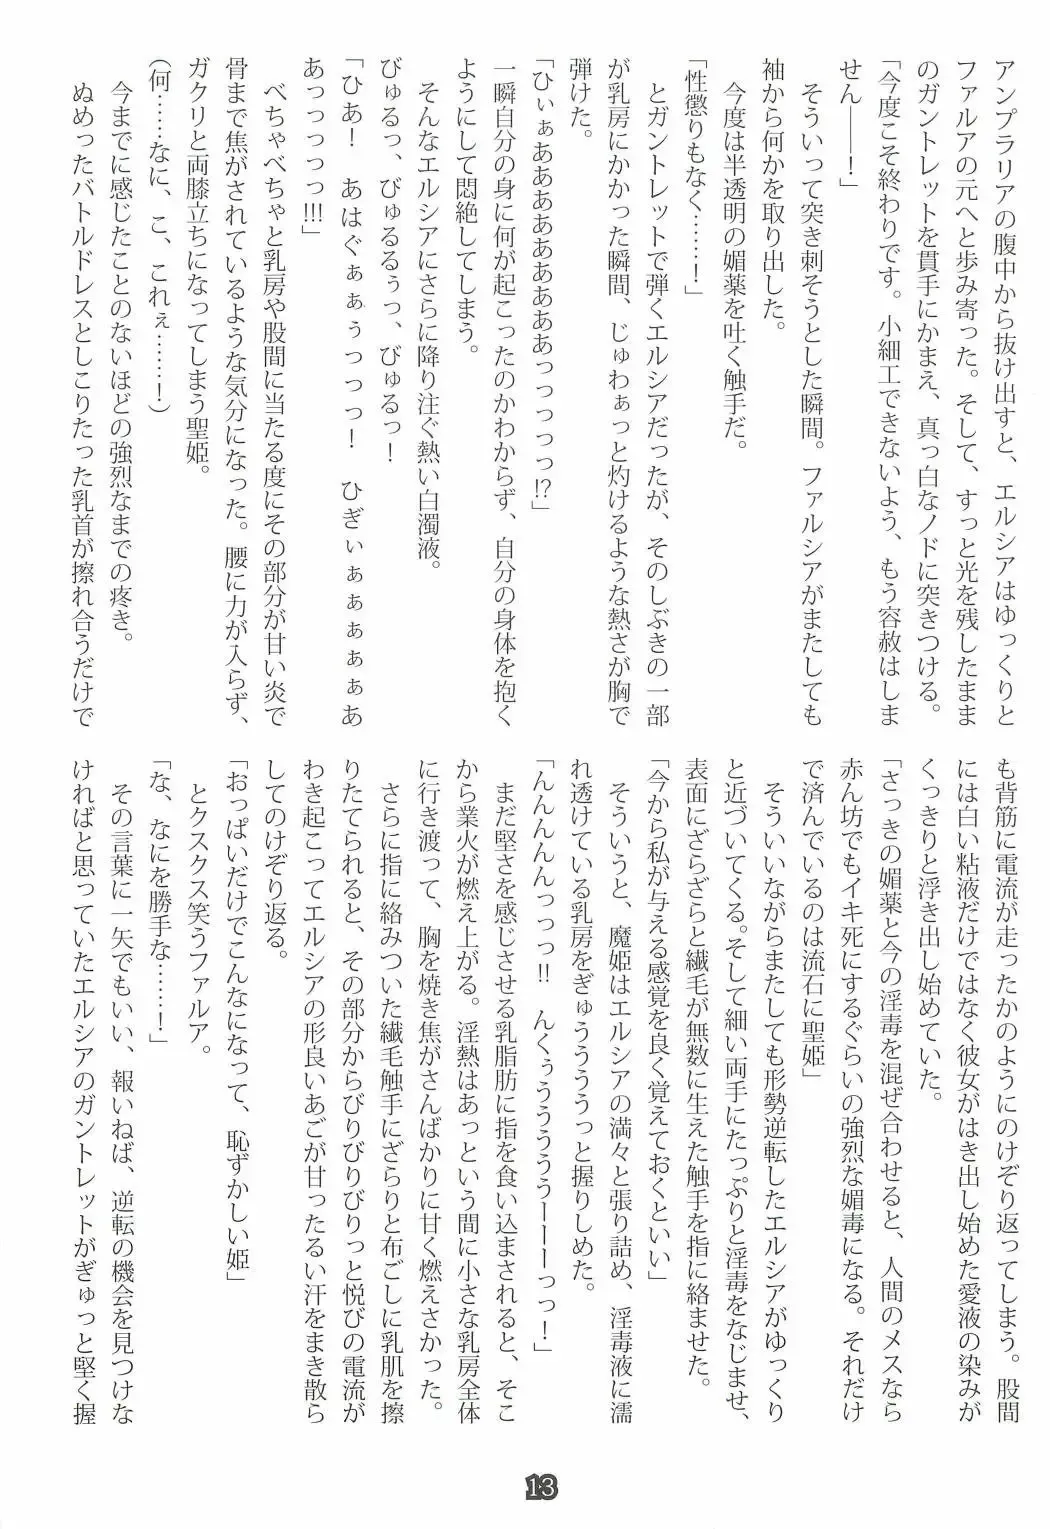 アンプラリアの腹中から抜け出すと、エルシアはゆっくりと
ファルアの元へと歩み寄った。そして、すっと光を残したまま
のガントレットを貫手にかまえ、真っ白なノドに突きつける。
「今度こそ終わりです。小細工できないよう、もう容赦はしま
せん――！」
そういって突き刺そうとした瞬間。ファルシアがまたしても
袖から何かを取り出した。
今度は半透明の媚薬を吐く触手だ。
「性懲りもなく………！」
とガントレットで弾くエルシアだったが、そのしぶきの一部
が乳房にかかった瞬間、じゅわぁっと灼けるような熱さが胸で
弾けた。
「ひぃぁあああああああああっっっっっ!?」
一瞬自分の身に何が起こったのかわからず、自分の身体を抱く
ようにして悶絶してしまう。
そんなエルシアにさらに降り注ぐ熱い白濁液。
びゅるっ、びゅるるぅっ、びゅるっ！
「ひあ！　あはぐぁぁぅっっっ！　ひぎぃぁぁぁぁぁああ
あっっっっっ!!!」
べちゃべちゃと乳房や股間に当たる度にその部分が甘い炎で
骨まで焦がされているような気分になった。腰に力が入らず、
ガクリと両膝立ちになってしまう聖姫。
(何……なに、こ、これぇ……！)
今までに感じたことのないほどの強烈なまでの疼き。
ぬめったバトルドレスとしこりたった乳首が擦れ合うだけで
も背筋に電流が走ったかのようにのけぞり返ってしまう。股間
には白い粘液だけではなく彼女がはき出し始めた愛液の染みが
くっきりと浮き出し始めていた。
「さっきの媚薬と今の淫毒を混ぜ合わせると、人間のメスなら
赤ん坊でもイキ死にするぐらいの強烈な媚毒になる。それだけ
で済んでいるのは流石に聖姫」
そういいながらまたしても形勢逆転したエルシアがゆっくり
と近づいてくる。そして細い両手にたっぷりと淫毒をなじませ、
表面にざらざらと繊毛が無数に生えた触手を指に絡ませた。
「今から私が与える感覚を良く覚えておくといい」
そういうと、魔姫はエルシアの満々と張り詰め、淫毒液に濡
れ透けている乳房をぎゅうううぅっと握りしめた。
「んんんんんっっっ!!　んくぅぅうううーーーっっ！」
まだ堅さを感じさせる乳脂肪に指を食い込まされると、そこ
から業火が燃え上がる。淫熱はあっという間に小さな乳房全体
に行き渡って、胸を焼き焦がさんばかりに甘く燃えさかった。
さらに指に絡みついた繊毛触手にざらりと布ごしに乳肌を擦
りたてられると、その部分からびりびりびりっと悦びの電流が
わき起こってエルシアの形良いあごが甘ったるい汗をまき散ら
してのけぞり返る。
「おっぱいだけでこんなになって、恥ずかしい姫」
とクスクス笑うファルア。
「な、なにを勝手な……！」
その言葉に一矢でもいい、報いねば、逆転の機会を見つけな
ければと思っていたエルシアのガントレットがぎゅっと堅く握
13